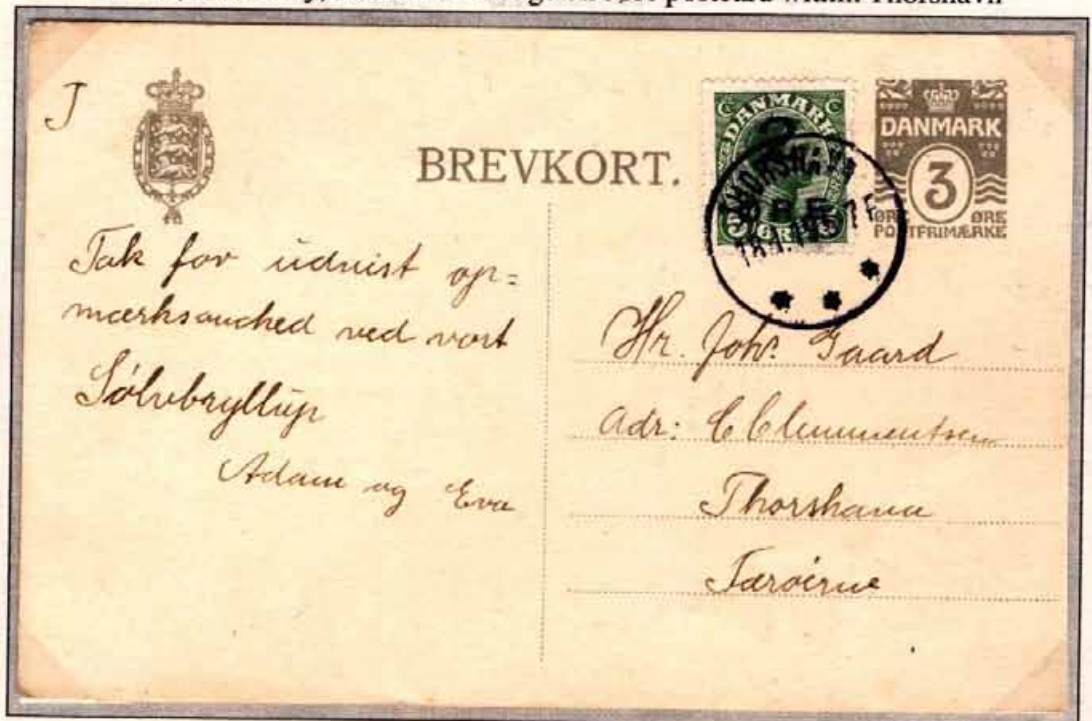 postcard within Thorshavn
J
BREVKORT.
DANMARK
3
ØRE ØRE
POSTFRIMÆRKE
DANMARK
2
ØRE
THORSHAVN
18.1.19
Tak for udvist op=
mærksomhed ved vort
Sølvbryllup
Adam og Eva
Hr. Johs. Gaard
Adr: C Clemmentsen
Thorshavn
Færøerne